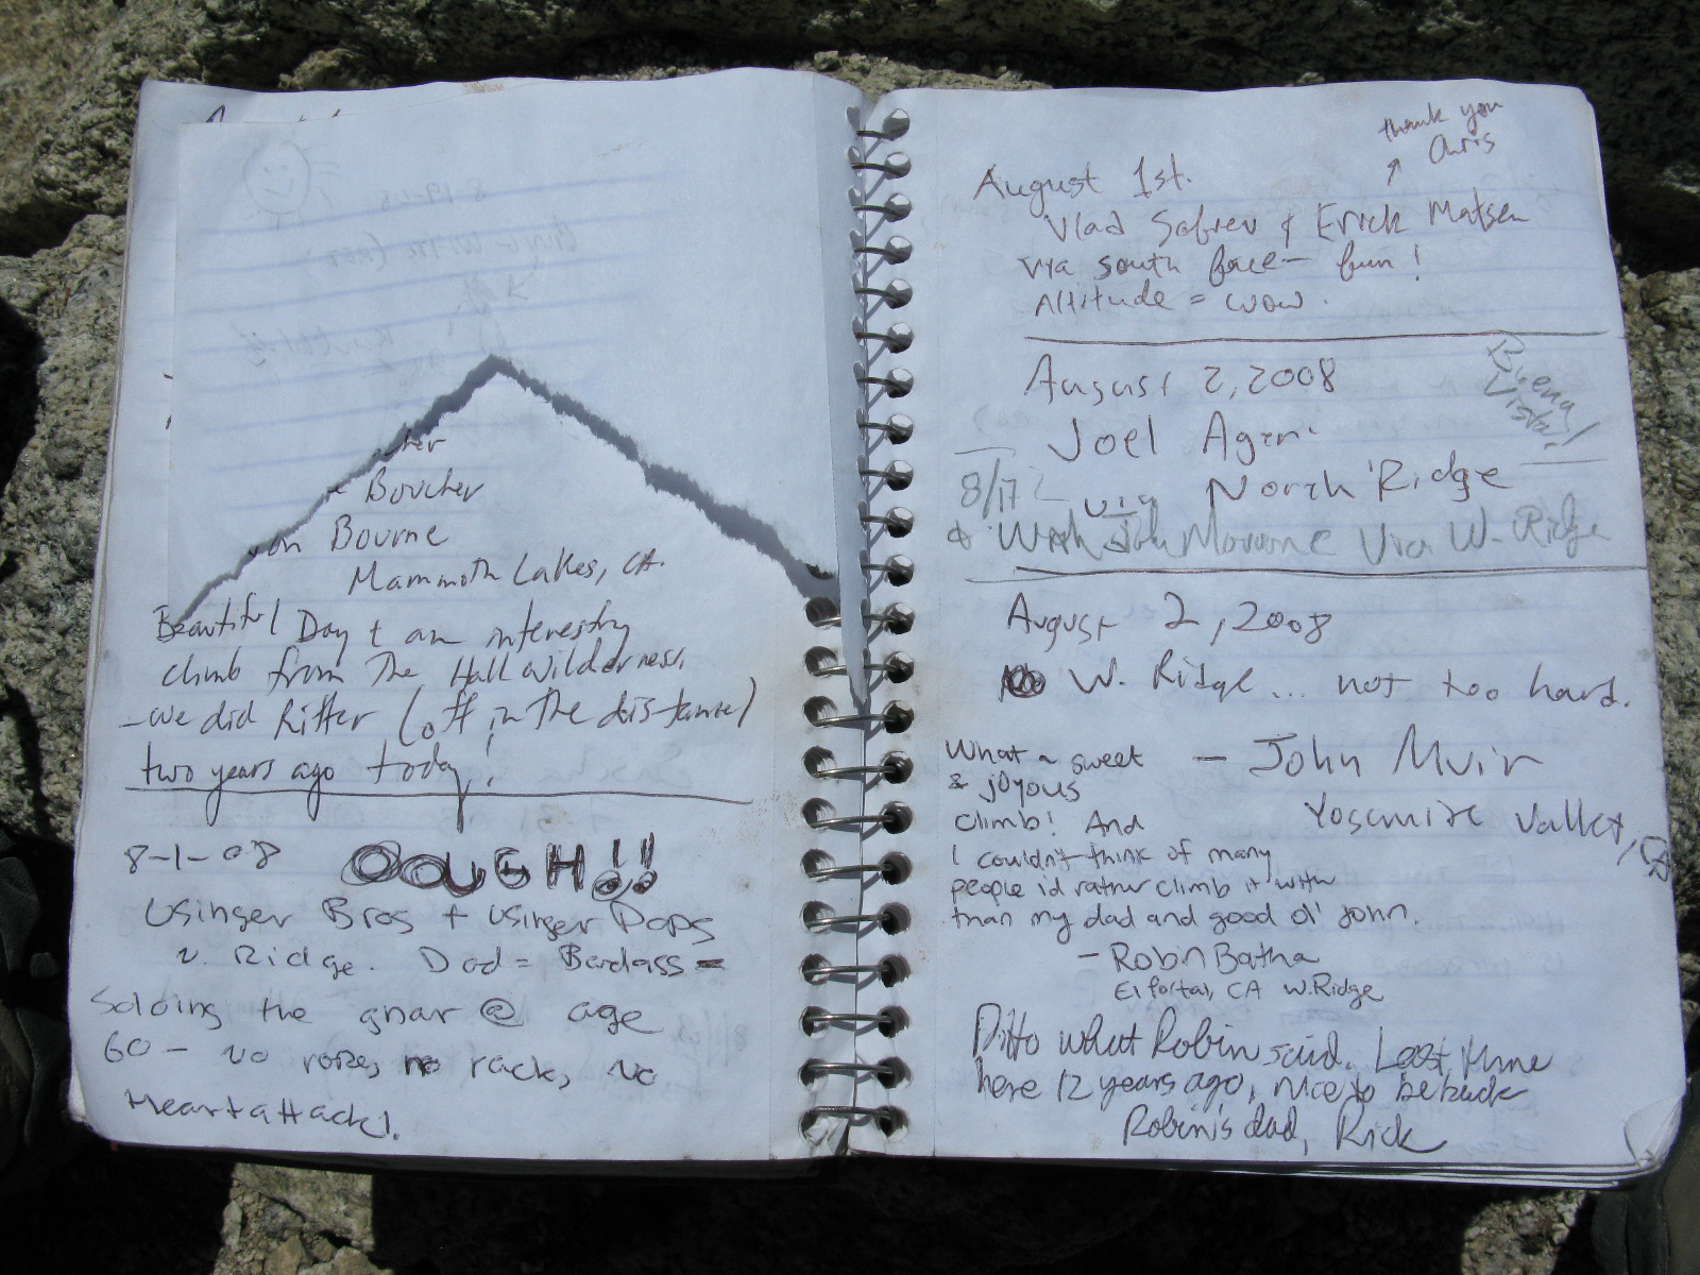 Boucher
Bourne
Mammoth Lakes, CA.
Beautiful Day & an interesting
climb from the Hall Wilderness.
-we did Ritter (off in the distance)
two years ago today!
8-1-08 OOUGH!!
Usinger Bros + Usinger Pops
N. Ridge. Dad = Badass -
Soloing the gnar @ age
60 - no rope, no rack, no
Heart attack!.
thank you
Chris
August 1st.
Vlad & Erick Matsen
via south face - fun!
Altitude = wow.
August 2, 2008
Buena
Vista!
Joel
8/17
via North Ridge
& With John Via W. Ridge
August 2, 2008
W. Ridge... not too hard.
- John Muir
Yosemite Valley, CA
What a sweet
& joyous
climb! And
I couldn't think of many
people i'd rather climb it with
than my dad and good ol' John.
- Robin Batha
El Portal, CA W. Ridge
Ditto what Robin said. Last time
here 12 years ago, nice to be back
Robin's dad, Rick